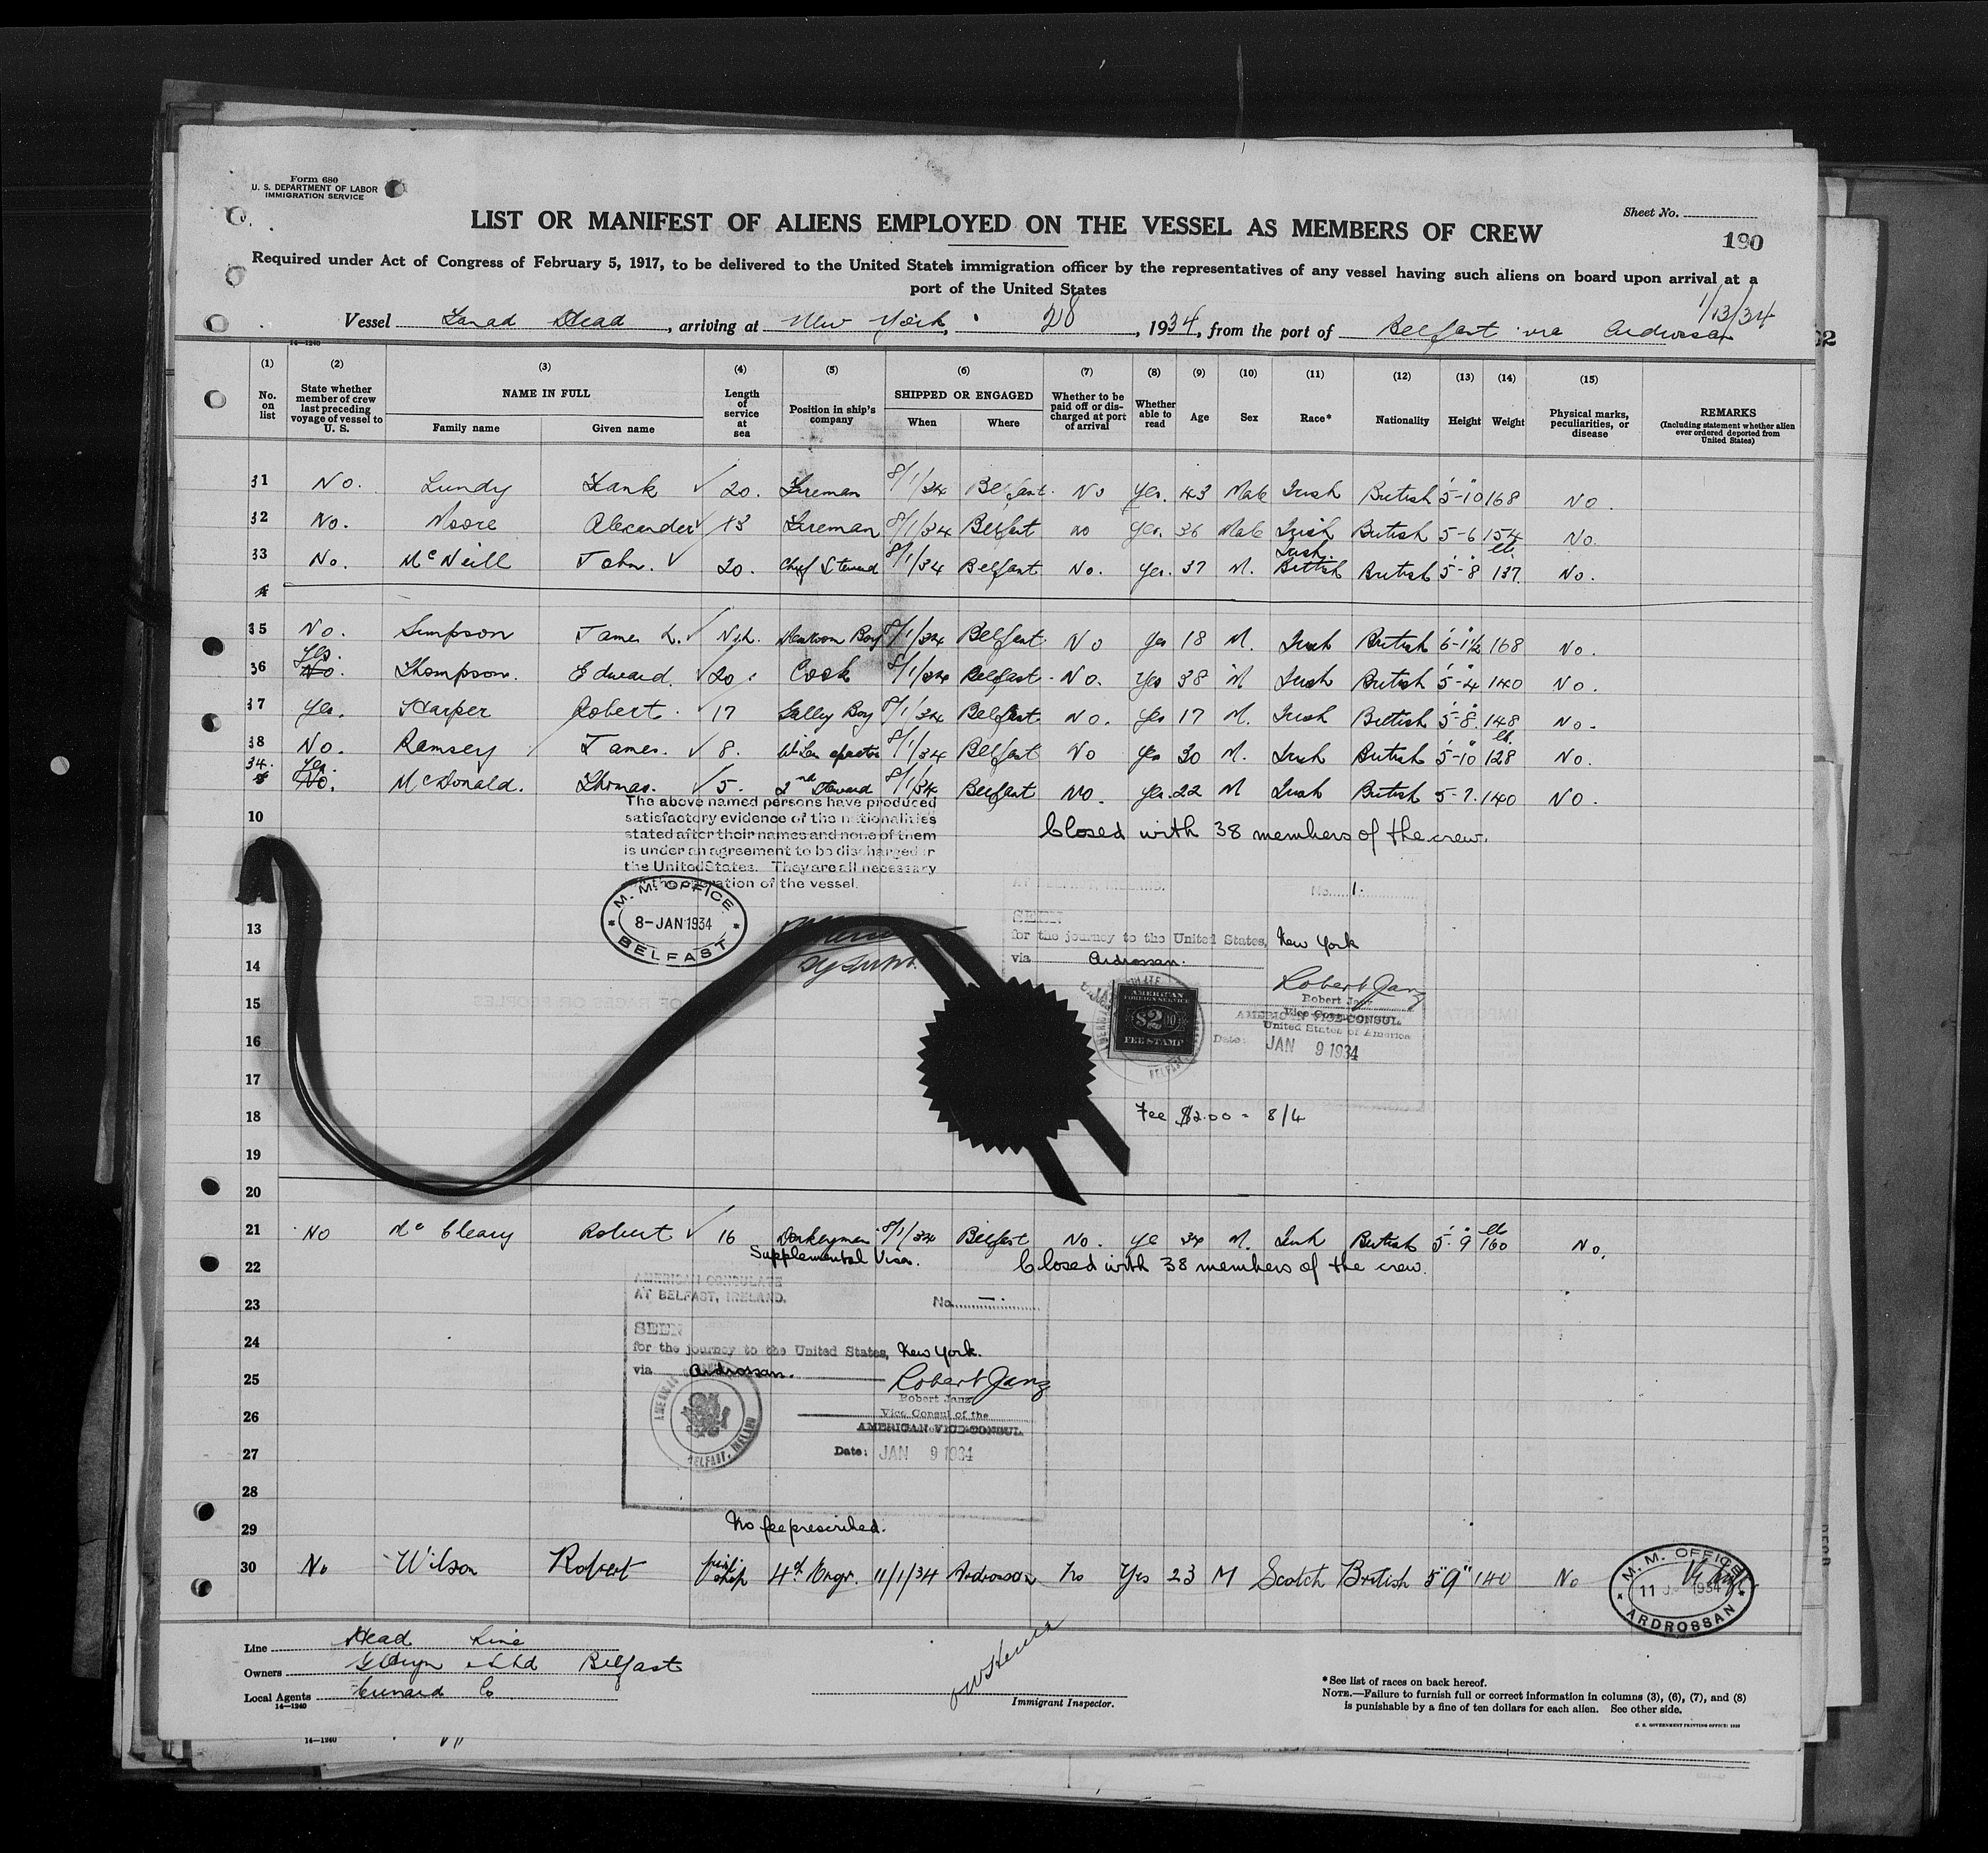 Form 680
U. S. DEPARTMENT OF LABOR
IMMIGRATION SERVICE
Sheet No.
190
LIST OR MANIFEST OF ALIENS EMPLOYED ON THE VESSEL AS MEMBERS OF CREW
Required under Act of Congress of February 5, 1917, to be delivered to the United States immigration officer by the representatives of any vessel having such aliens on board upon arrival at a
port of the United States
1/13/34
Vessel Head, arriving at New York, 28, 1934, from the port of Belfast via Ardrossan
14—1240
(1) (2) (3) (4) (5) (6) (7) (8) (9) (10) (11) (12) (13) (14) (15)
No. on list
State whether member of crew last preceding voyage of vessel to U. S.
NAME IN FULL
Family name Given name
Length of service at sea
Position in ship's company
SHIPPED OR ENGAGED
When Where
Whether to be paid off or discharged at port of arrival
Whether able to read
Age Sex Race* Nationality Height Weight
Physical marks, peculiarities, or disease
REMARKS
(Including statement whether alien ever ordered deported from United States)
31 No. Lundy 20. Fireman 8/1/34 Belfast No Yes. 43 Male Irish British 5-10 168 No.
32 No. Moore Alexander 13 Fireman 8/1/34 Belfast no Yes. 36 Male Irish British 5-6 154 No.
33 No. McNeill John. 20. Chief Steward 8/1/34 Belfast No. Yes. 37 M. Irish British British 5-8 137 No.
4
35 No. Simpson James L. Nil. Boy 8/1/34 Belfast No Yes 18 M. Irish British 6-1½ 168 No.
36 Yes. No. Thompson. Edward. 20. Cook 8/1/34 Belfast. No. Yes 38 M Irish British 5-4 140 No.
37 Yes. Harper Robert. 17 Galley Boy 8/1/34 Belfast No. Yes 17 M. Irish British 5-8 148 No.
38 No. Ramsey James. 8. 8/1/34 Belfast No Yes 30 M. Irish British 5-10 128 No.
34. Yes. No. McDonald. Thomas. 5. 2nd Steward 8/1/34 Belfast No. Yes. 22 M Irish British 5-7. 140 No.
The above named persons have produced
satisfactory evidence of the nationalities
stated after their names and none of them
is under an agreement to be discharged in
the United States. They are all necessary
operation of the vessel.
10 Closed with 38 members of the crew.
M. M. OFFICE
8-JAN 1934
BELFAST
AT BELFAST, IRELAND.
No. 1.
SEEN
for the journey to the United States, New York
via Ardrossan.
Robert Janz
Robert Janz
Vice Consul
AMERICAN VICE CONSUL
United States of America
Date: JAN 9 1934
AMERICAN
FOREIGN SERVICE
$2.00
FEE STAMP
13
14
15
16
17
18
Fee $2.00 = 8/4
19
20
21 No McCleary Robert 16 Donkeyman 8/1/34 Belfast No. Ye 34 M. Irish British 5-9 160 No.
Supplemental Visa.
22 Closed with 38 members of the crew.
AMERICAN CONSULATE
AT BELFAST, IRELAND.
No.
23
SEEN
24
for the journey to the United States, New York.
via Ardrossan.
25
Robert Janz
Robert Janz
Vice Consul of the
AMERICAN VICE CONSUL
26
Date: JAN 9 1934
27
AMERICAN
BELFAST, IRELAND
28
29
No fee prescribed.
30 No Wilson Robert first ship 4th Engr. 11/1/34 Ardrossan No Yes 23 M Scotch British 5'9" 140 No
M. M. OFFICE
11 1934
ARDROSSAN
Line Head Line
Owners Belfast
Local Agents Cunard Co
14—1240
Immigrant Inspector.
*See list of races on back hereof.
NOTE.—Failure to furnish full or correct information in columns (3), (6), (7), and (8)
is punishable by a fine of ten dollars for each alien. See other side.
U. S. GOVERNMENT PRINTING OFFICE:
14—1240